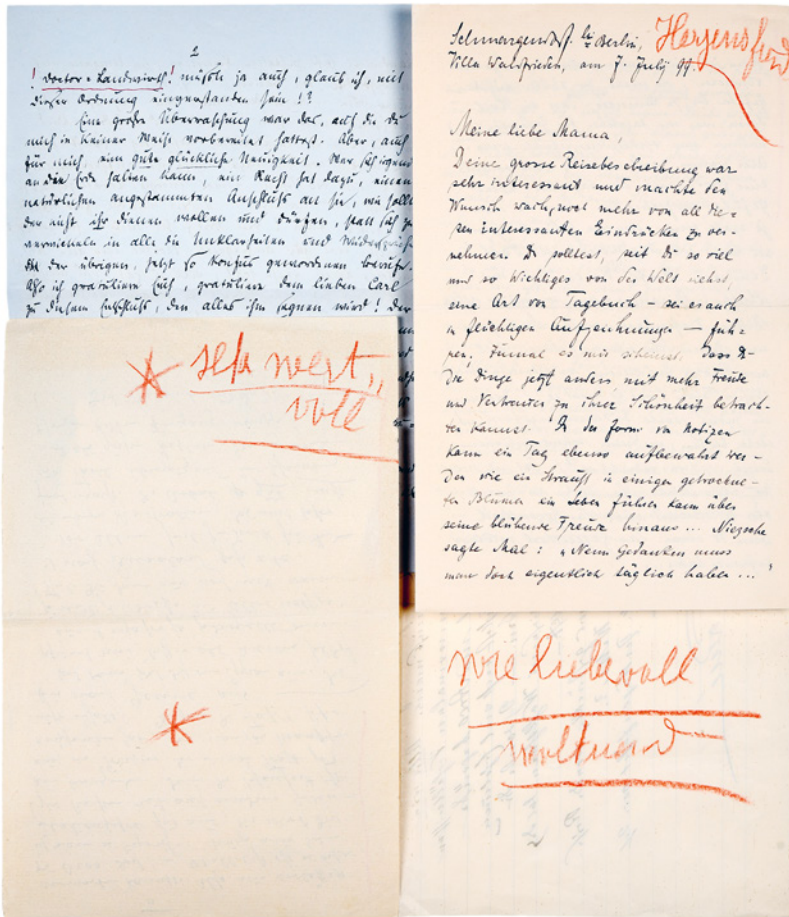 2
! Doctor-Landwirth! müßte ja auch, glaub ich, mit
dieser Ordnung einverstanden sein!?
Eine große Überraschung war das, auf die Du
mich in keiner Weise vorbereitet hattest. Aber, auch
für mich, eine gute glückliche Neuigkeit. Wer sich irgend
an die Erde halten kann, ein Recht hat dazu, einen
natürlichen angestammten Anschluß an sie, wie sollte
der nicht ihr dienen wollen und dürfen, statt sich zu
verwickeln in alle die Unklarheiten und
der übrigen, jetzt so konfus gewordenen Berufe.
Also ich gratuliere Euch, gratuliere dem lieben Carl
zu diesem Entschluß, den alles ihm segnen wird! Der
Schmargendorf bei Berlin,
Villa Waldfrieden, am 7. July 99.
Meine liebe Mama,
Deine grosse Reisebeschreibung war
sehr interessant und machte den
Wunsch wach, noch mehr von all die-
sen interessanten Eindrücken zu ver-
nehmen. Du solltest, seit Du so viel
und so Wichtiges von der Welt siehst,
eine Art von Tagebuch – sei es auch
in flüchtigen Aufzeichnungen – füh-
ren, zumal es mir scheint, dass Du
die Dinge jetzt anders, mit mehr Freude
und Vertrauen zu ihrer Schönheit betrach-
ten kannst. In der Form von Notizen
kann ein Tag ebenso aufbewahrt wer-
den wie ein Strauß in einigen getrockne-
ten Blumen ein Leben führen kann über
seine blühende Freude hinaus ... Niezsche
sagte Mal: „Nenn Gedanken muss
man doch eigentlich täglich haben ..."
sehr wert,,
voll
wie liebevoll
woltuend